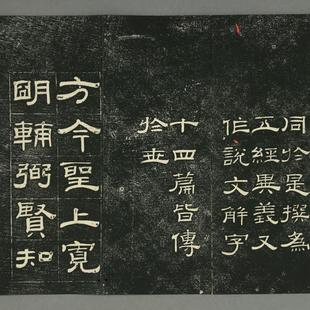 同於是撰為
五經異義又
作說文解字
十四篇皆傳
於世
方今聖上寛
明輔弼賢知